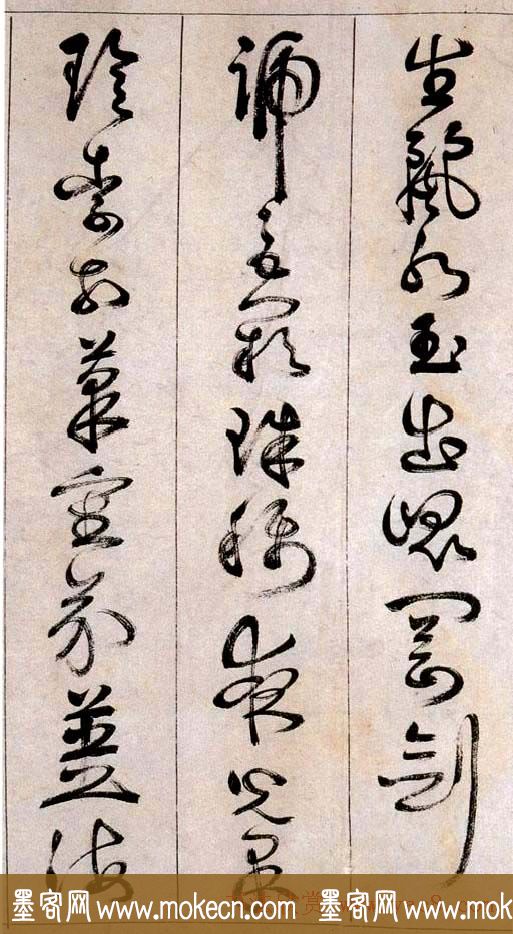 生麗水玉出崑岡劍
號巨闕珠稱夜光果
珍李柰菜重芥薑海
墨客网 www.mokecn.com 墨客网 www.mok
赏